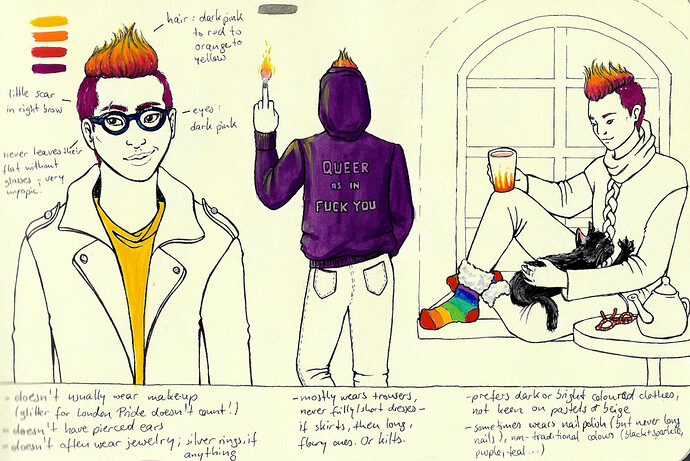 hair: dark pink
to red to
orange to
yellow
little scar
in right brow
eyes:
dark pink
never leaves their
flat without
glasses - very
myopic
QUEER
AS IN
FUCK YOU
- doesn't usually wear makeup
(glitter for London Pride doesn't count!)
- doesn't have pierced ears
- doesn't often wear jewelry; silver rings, if
anything
- mostly wears trowsers,
never frilly/short dresses -
if skirts, then long,
flowy ones. Or kilts.
- prefers dark or bright coloured clothes,
not keen on pastels or beige
- sometimes wears nail polish (but never long
nails), non-traditional colours (black+sparkle,
purple, teal...)